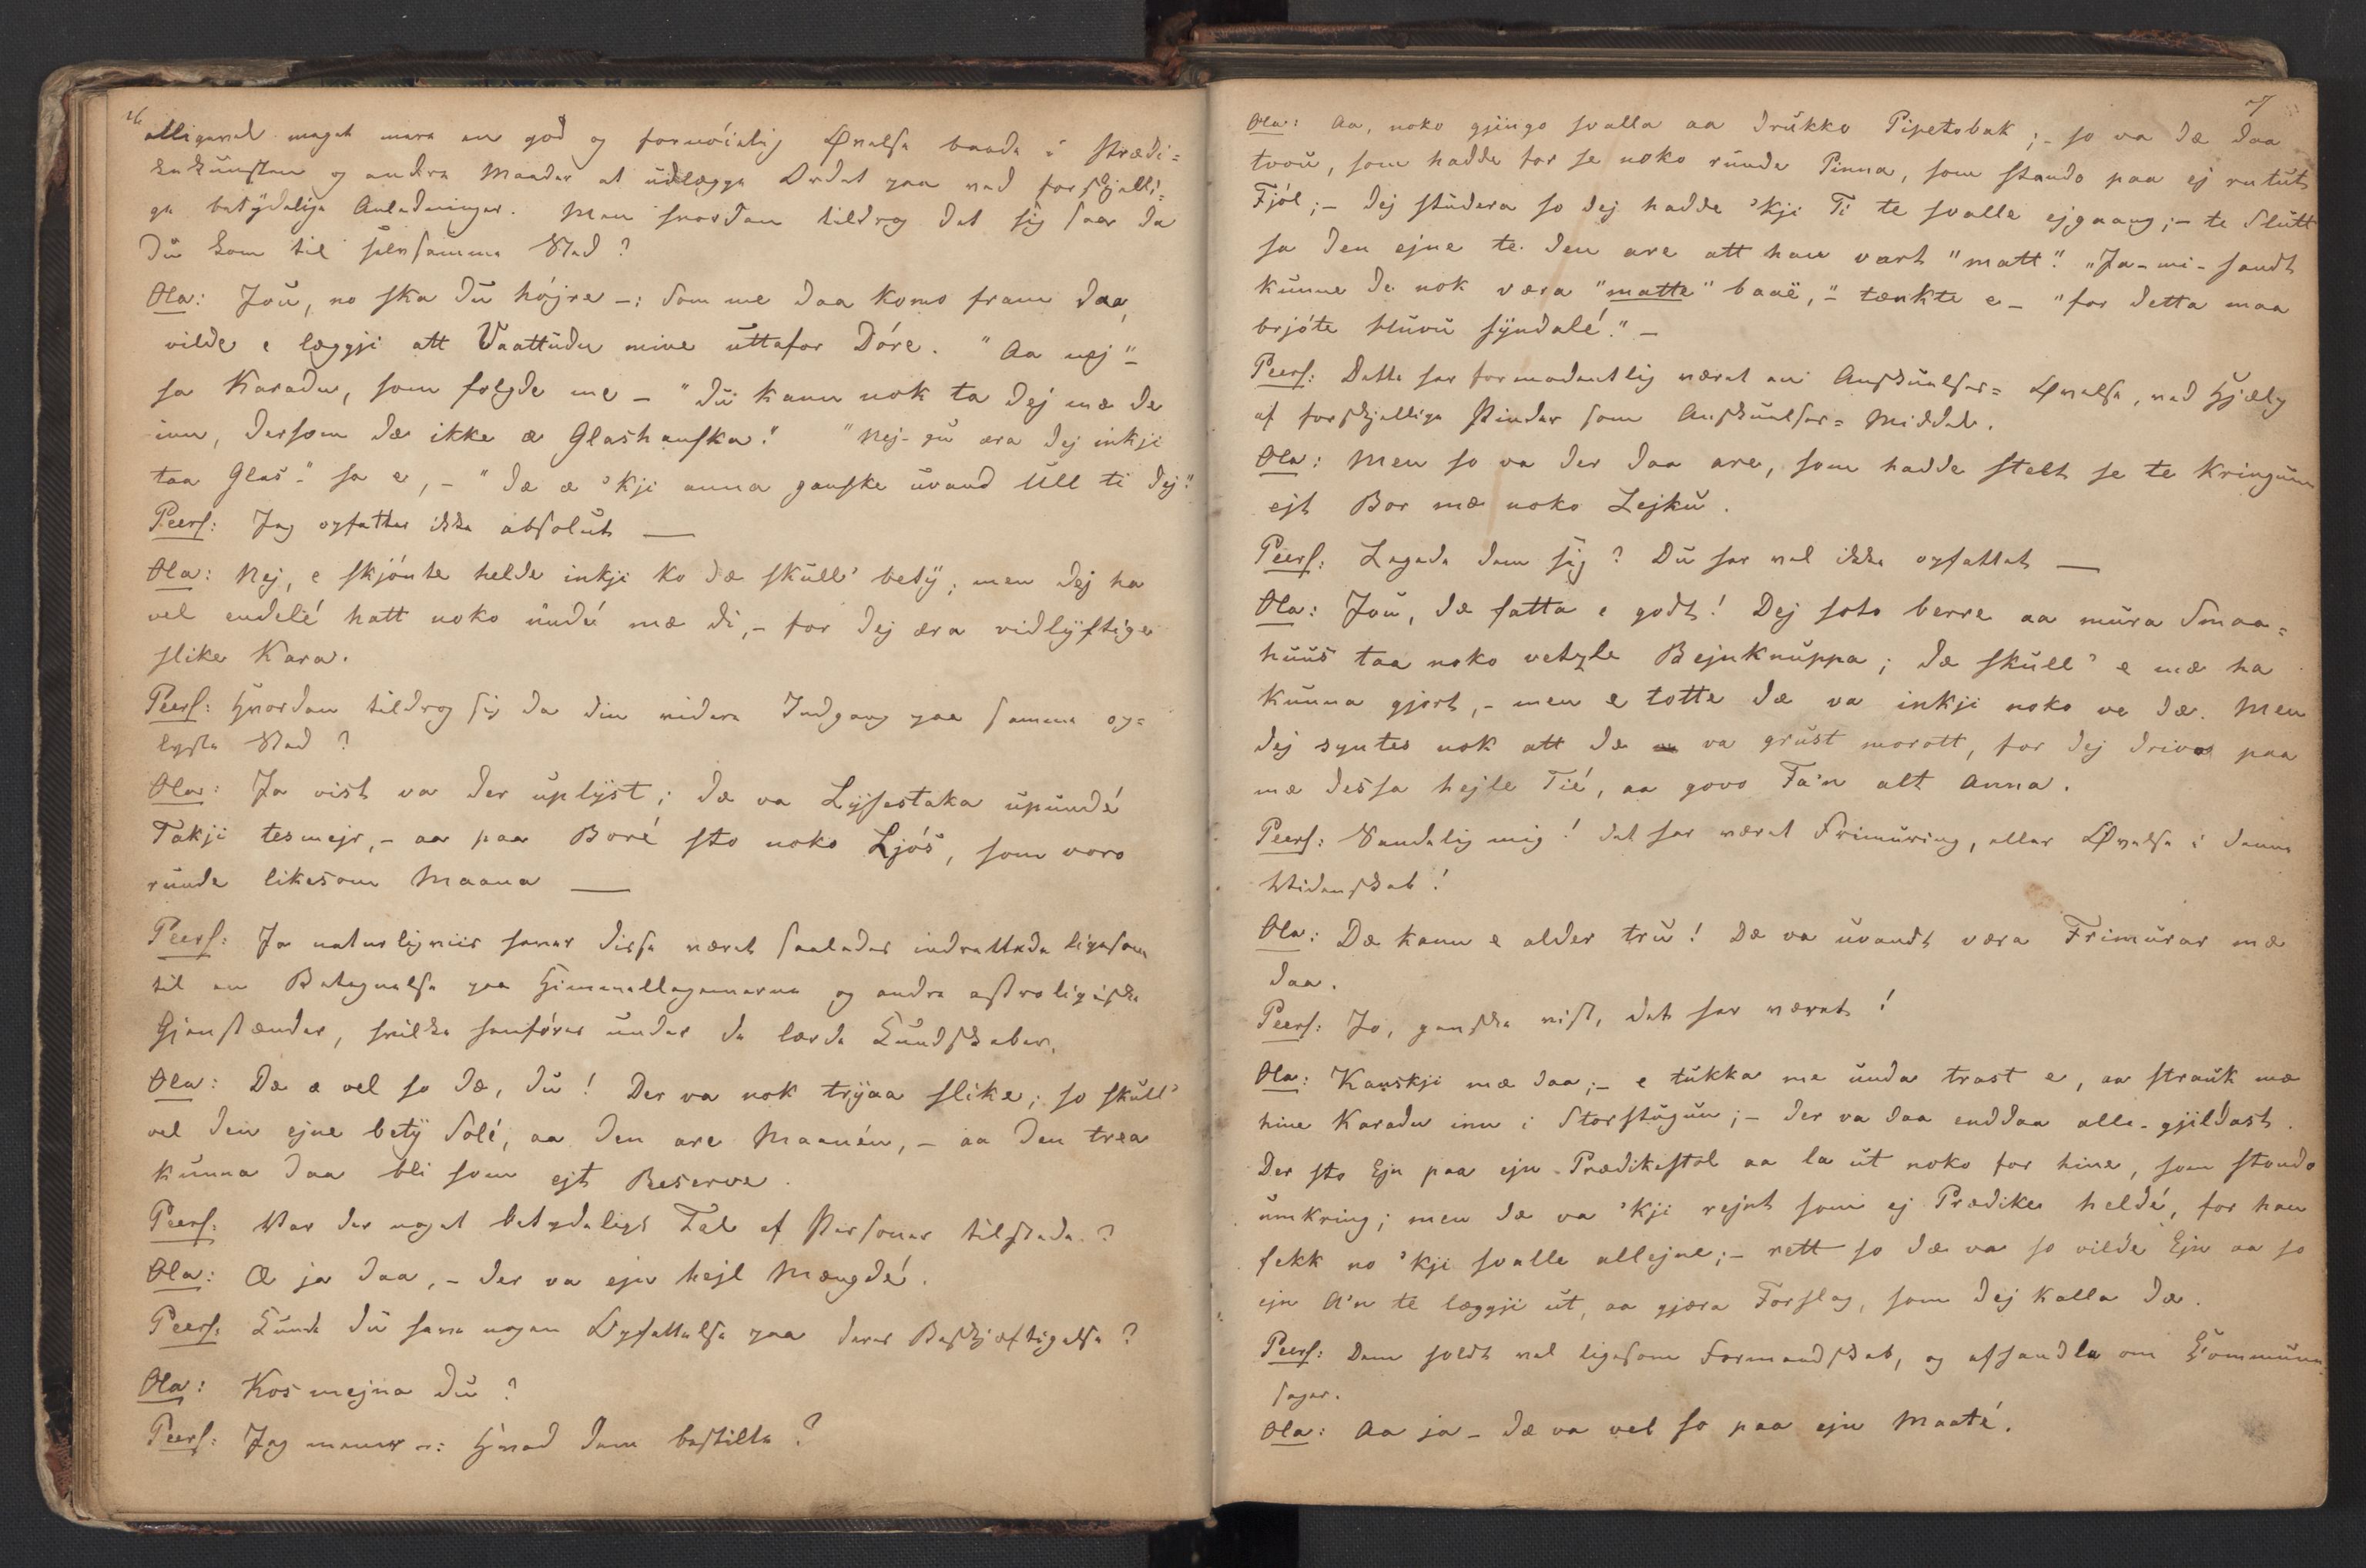 alligavel maget mere en god og fornøielig Øvelse baade i Prædi=
kekunsten og andre Maader at udlægge Ordet paa ved forskjelli=
ge betydelige Anledninger. Men hvordan tildrog det sig saa da
du kom til selvsamme Sted?
Ola: Jou, no ska du højre -: Som me daa komo fram daa,
vilde e læggji att Vaattudn mine uttafor Dóre. "Aa nej"-
sa Karadn, som folgde me - "du kann nok ta dej mæ de
inn, dersom dæ ikke æ Glashanska." "Nej-gu æra dej inkji
taa Glas"- sa e, - "dæ æ 'kji anna ganske uvand Ull ti dej."
Peers: Jeg opfatter ikke absolut —
Ola: Nej, e skjónte helde inkji ko dæ skull' bety; men dej ha
vel endelé hatt noko undé mæ di, - for dej æra vidlyftige
slike Kara.
Peers: Hvordan tildrog sig da din videre Indgang paa samme op=
lyste Sted?
Ola: Ja vist va der uplyst; dæ va Lysestaka upundé
Takji tesmejr, - aa paa Boré sto noko Ljós, som voro
runde likesom Maana —
Peers: Ja naturligviis haver disse været saaledes indrettede ligesom
til en Betegnelse paa Himmellegemerne og andre astroligiske
Gjenstænder, hvilke henføres under de lærde Kundskaber.
Ola: Dæ æ vel so dæ, du! Der va nok tryaa slike; so skull'
vel den ejne bety Solé, aa den are Maanén, - aa den trea
kunna daa bli som ejt Reserve.
Peers: Var der noget betydeligt Tal af Personer tilstede?
Ola: Æ ja daa, - der va ejn hejl Mængdé.
Peers: Kunde du have nogen Opfattelse paa deres Beskjæftigelse?
Ola: Kos mejna du?
Peers: Jeg mener -: Hvad dem bestilte?
7
Ola: Aa, noko gjingo svalla aa drukko Pipetobak; - so va dæ daa
tvou, som hadde for se noko runde Pinna, som stando paa ej rutut
Fjól; - dej studera so dej hadde 'kji Ti te svalle ejgaang; - te Slutt
sa den ejne te den are att han vart "matt". "Ja-mi-sandt
kunne de nok væra "matte" baaë," - tænkte e - "for detta maa
brjóte Huvu syndalé." -
Peers: Dette har formodentlig været en Anskuelses= Øvelse, ved Hjælp
af forskjellige Pinder som Anskuelses= Middel.
Ola: Men so va der daa are, som hadde stelt se te kringum
ejt Bor mæ noko Lejku.
Peers: Legede dem sig? Du har vel ikke opfattet —
Ola: Jou, dæ fatta e godt! Dej soto berre aa mura Smaa=
huus taa noko vetyle Bejnknuppa; dæ skull' e mæ ha
kunna gjort, - men e totte dæ va inkji noko ve dæ. Men
dej syntes nok att dæ va grust morott, for dej drivo paa
mæ dessa hejle Tié, aa govo Fa'n alt Anna.
Peers: Vendelig mig! det har været Frimuring, eller Øvelse i denne
Widenskab!
Ola: Dæ kann e alder tru! Dæ va uvandt væra Frimurar mæ
daa.
Peers: Jo, ganske vist, det har været!
Ola: Kanskji mæ daa; - e tukka me unda trast e, aa strauk mæ
hine Karadn inn i Storstugun; - der va daa enddaa alle-gjildast.
Der sto Ejn paa ejn Prædikestol aa la ut noko for hine, som stando
umkring; men dæ va 'kji rejnt som ej Prædike heldé, for han
fekk no 'kji svalle allejne; - rett so dæ va so vilde Ejn aa so
ejn A'n te læggji ut, aa gjæra Forslag, som dej kalla dæ.
Peers: Dem holdt vel ligesom Formandskab, og afhandla om Kommune
sager.
Ola: Aa ja - dæ va vel so paa ejn Maaté.